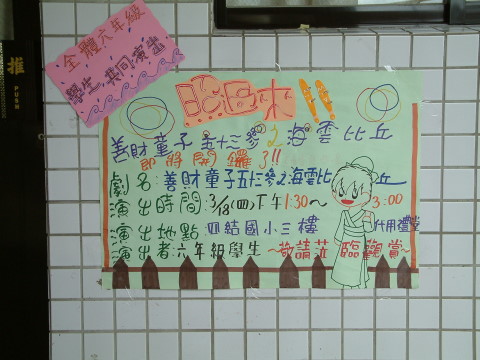 推
PUSH
全體六年級
學生,共同演出
哈囉來!!
善財童子五十三參之海雲比丘
即將開鑼了!!
劇名:善財童子五十三參之海雲比丘
演出時間:3/18(四)下午1:30~3:00
演出地點:四結國小三樓代用禮堂
演出者:六年級學生~敬請蒞臨觀賞~